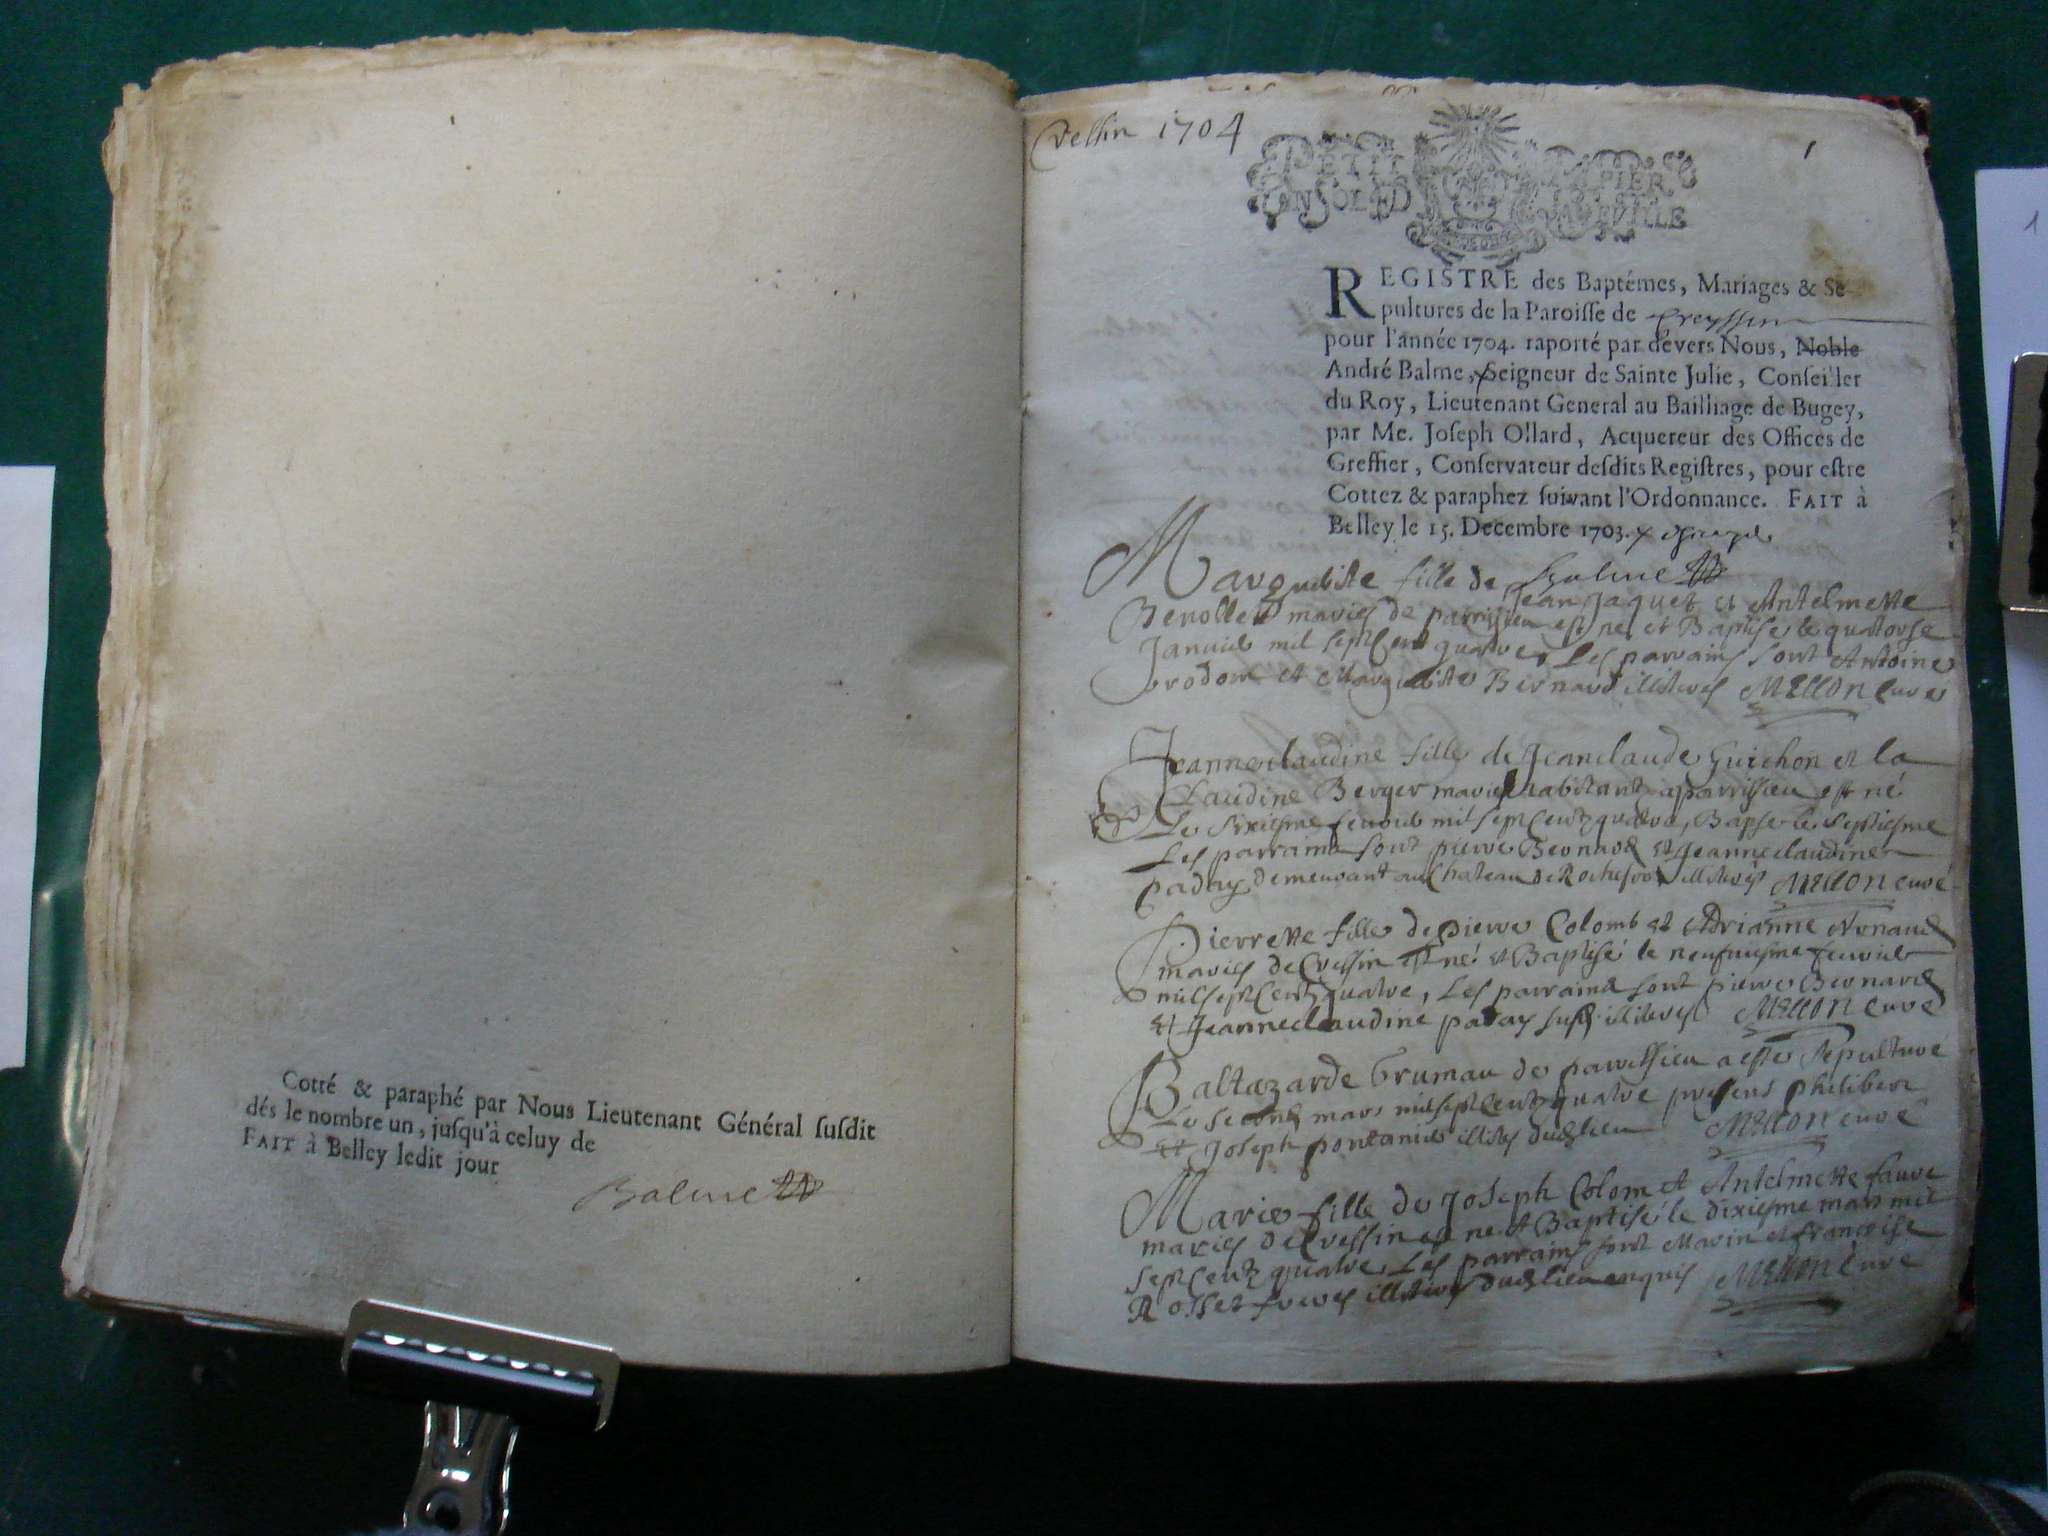 Cotté & paraphé par Nous Lieutenant Général susdit
dés le nombre un, jusqu'à celuy de
FAIT à Belley ledit jour
Balme
Cressin 1704
1
PETIT PAPIER
UN SOL ED LA FEUILLE
REGISTRE des Baptémes, Mariages & Se-
pultures de la Paroisse de Creyssin
pour l'année 1704. raporté par devers Nous, Noble
André Balme, Seigneur de Sainte Julie, Conseiller
du Roy, Lieutenant General au Bailliage de Bugey,
par Me. Joseph Ollard, Acquereur des Offices de
Greffier, Conservateur desdits Registres, pour estre
Cottez & paraphez suivant l'Ordonnance. FAIT à
Belley le 15. Decembre 1703.
Balme
Marguerite fille de Jean Jaquet et Antelmette
mariés de parrissieu est né et Baptisé le quatorse
Janvier mil sept cent quatre, Les parrains sont Antoine
et Marguerite Bernard illiterés MELLON curé
Jeanneclaudine fille de Jeanclaude Guichon et la
Claudine Berger mariés habitant a parrissieu est né
Le sixiesme fevrier mil sept centz quatre, Bapse le septiesme
Les parrains sont pierre Bernard et Jeanneclaudine
paday demeurant au Chateau de Rochefort illiterés MELLON curé
Pierrette fille de pierre Colomb et Adrianne
mariés de Cressin est né et Baptisé le neufviesme fevrier
mil sept centz quatre, Les parrains sont pierre Bernard
et Jeanneclaudine paday susd illiterés MELLON curé
Baltazarde Grumau de parrissieu a esté sepulturé
Le second mars mil sept centz quatre presens philibert
et Joseph illit. dud lieu MELLON curé
Marie fille de Joseph Colom et Antelmette favre
mariés de Cressin est né et Baptisé le dixiesme mars mil
sept centz quatre, Les parrains sont Marin et françoise
Rosset illiterés dud lieu enquis MELLON curé